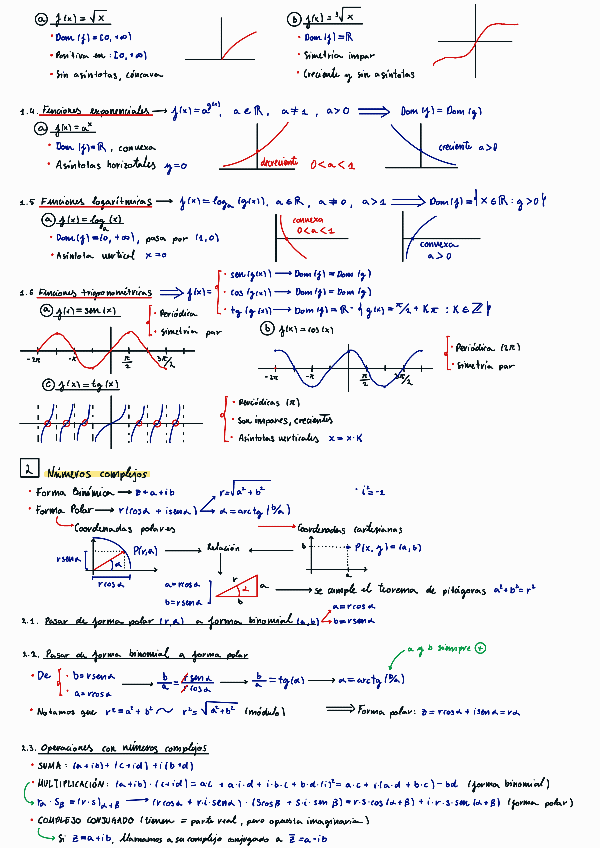 ⓐ f(x) = √x
• Dom (f) = [0, +∞)
• Positiva en : [0, +∞)
• Sin asíntotas, cóncava
ⓑ f(x) = ³√x
• Dom (f) = ℝ
• Simetría impar
• Creciente y sin asíntotas
1.4. Funciones exponenciales → f(x) = a^g(x), a ∈ ℝ, a ≠ 1, a > 0 ⟹ Dom (f) = Dom (g)
ⓐ f(x) = aˣ
• Dom (f) = ℝ, convexa
• Asíntotas horizotales y=0
decreciente 0 < a < 1
creciente a > 0
1.5 Funciones logarítmicas → f(x) = logₐ (g(x)), a ∈ ℝ, a ≠ 0, a > 1 ⟹ Dom (f) = { x ∈ ℝ : g > 0 }
ⓐ f(x) = logₐ (x)
• Dom (f) = (0, +∞), pasa por (1,0)
• Asíntota vertical x = 0
convexa
0 < a < 1
convexa
a > 0
1.6 Funciones trigonométricas ⟹ f(x) =
• sen (g(x)) → Dom (f) = Dom (g)
• cos (g(x)) → Dom (f) = Dom (g)
• tg (g(x)) → Dom (f) = ℝ - { g(x) = π/2 + Kπ : K ∈ ℤ }
ⓐ f(x) = sen (x)
• Periódica
• Simetría par
-2π -π π/2 3π/2
ⓑ f(x) = cos (x)
• Periódica (2π)
• Simetría par
-2π -π π/2 3π/2
ⓒ f(x) = tg (x)
• Periódicas (π)
• Son impares, crecientes
• Asíntotas verticales x = x·K
2 Números complejos
• Forma Binómica → z = a + ib r = √a² + b² • i² = -1
• Forma Polar → r (cos α + i sen α) α = arctg (b/a)
Coordenadas polares Coordenadas cartesianas
r sen α P(r, α) r cos α α → Relación ← b P (x, y) = (a, b) a
a = r cos α
b = r sen α
r α a b
→ se cumple el teorema de pitágoras a² + b² = r²
2.1. Pasar de forma polar (r, α) a forma binomial (a, b) a = r cos α
b = r sen α
2.2. Pasar de forma binomial a forma polar
a y b siempre ⊕
• De • b = r sen α • a = r cos α → b/a = r sen α / r cos α → b/a = tg (α) → α = arctg (b/a)
• Notamos que r² = a² + b² ~ r² = √a² + b² (módulo) ⟹ Forma polar: z = r cos α + i sen α = rα
2.3. Operaciones con números complejos
• SUMA: (a + ib) + (c + id) + i (b + d)
• MULTIPLICACIÓN: (a + ib) · (c + id) = a·c + a·i·d + i·b·c + b·d·(i)² = a·c + i (a·d + b·c) - bd (forma binomial)
rα · Sβ = (r·s)α+β → (r cos α + r·i·sen α) · (S cos β + S·i·sin β) = r·s·cos (α+β) + i·r·s·sen (α+β) (forma polar)
• COMPLEJO CONJUGADO (tienen = parte real, pero opuesta imaginaria)
Si z = a + ib, llamamos a su complejo conjugado a z̄ = a - ib